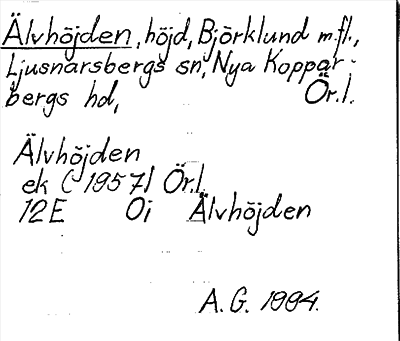 Älvhöjden, höjd, Björklund m.fl.,
Ljusnarsbergs sn, Nya Koppar-
bergs hd, Ör.l.
Älvhöjden
ek (1957) Ör.l.
12E 0i Älvhöjden
A.G. 1994.